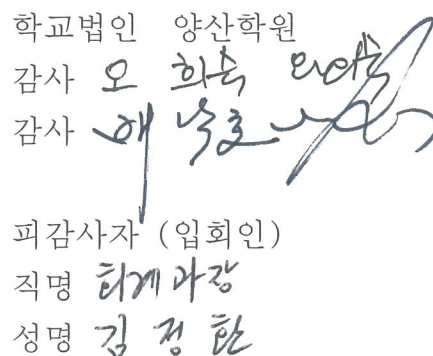 학교법인 양산학원
감사 오 희숙
감사
피감사자 (입회인)
직명 회계과장
성명 김 정 환